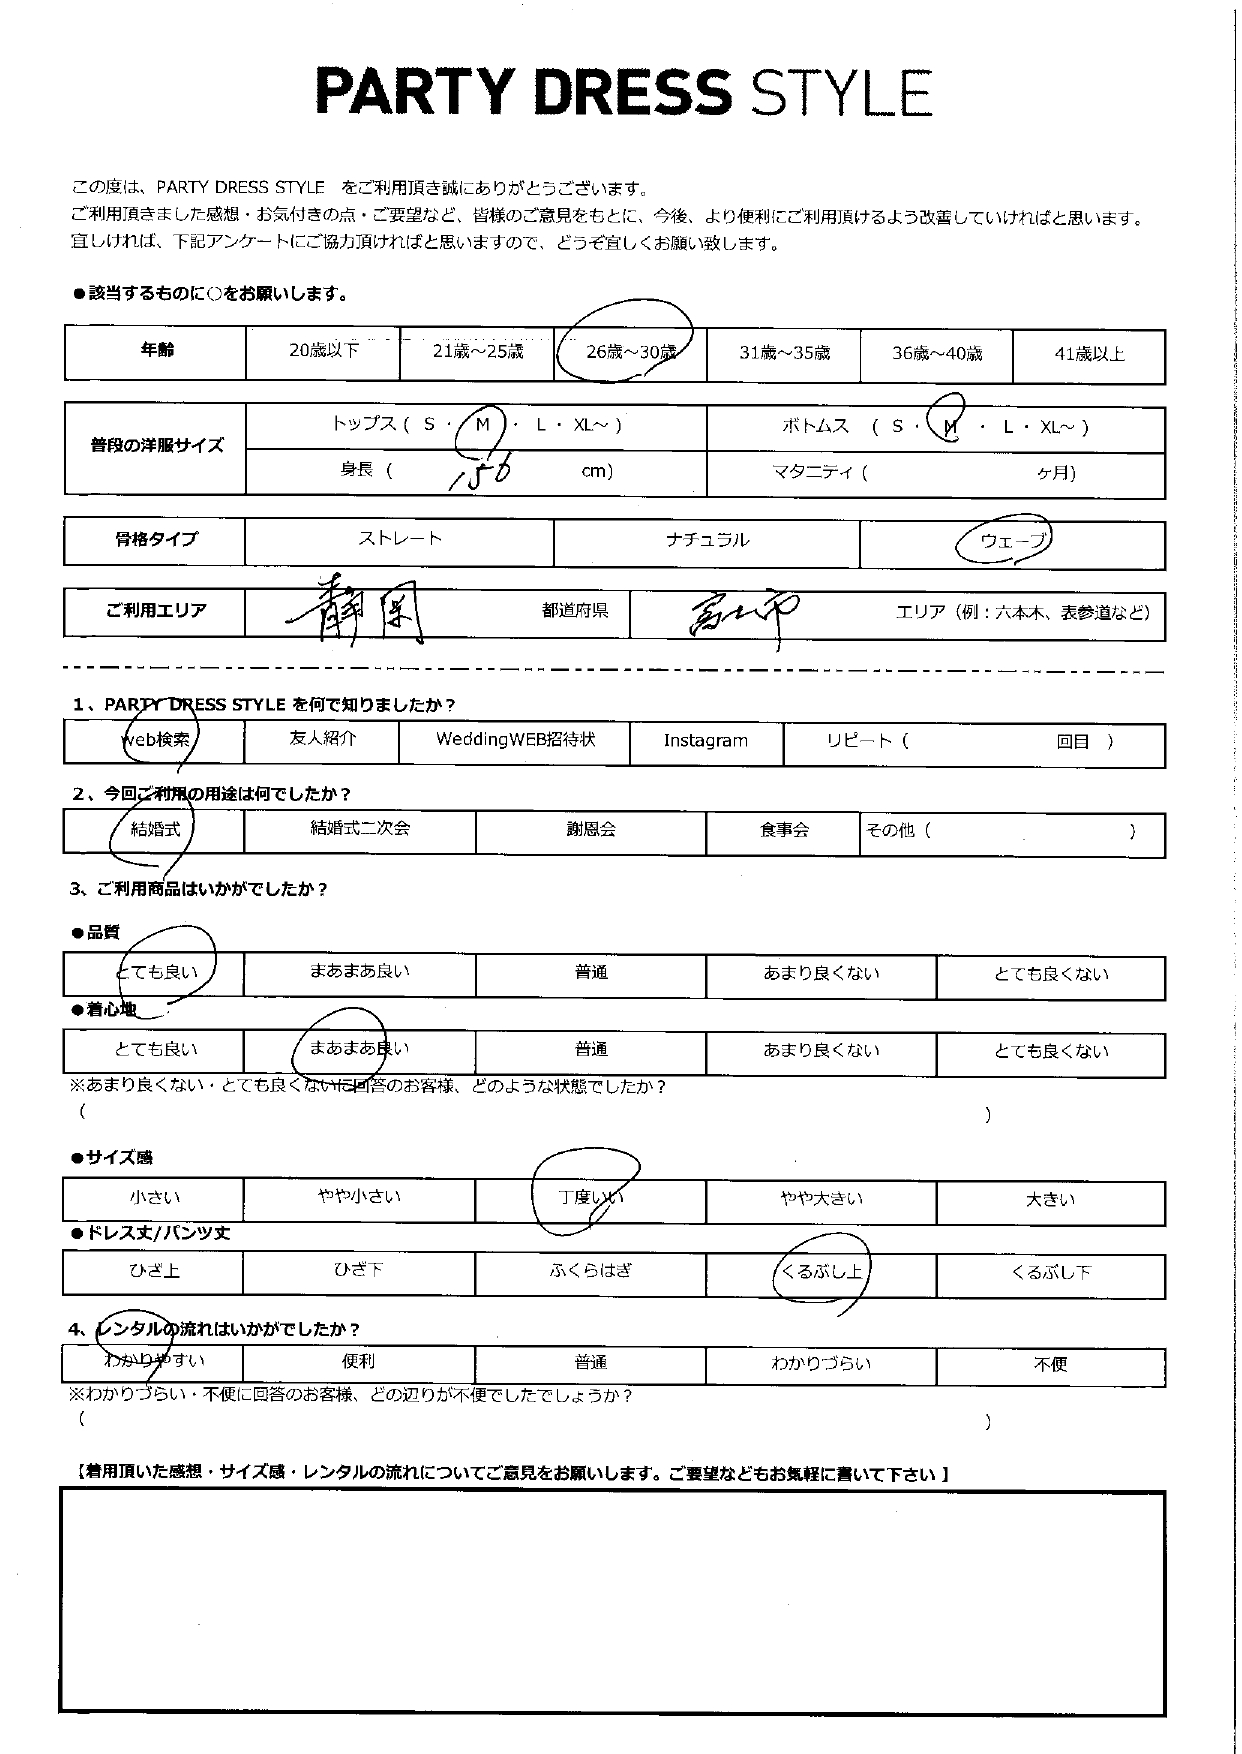 PARTY DRESS STYLE
この度は、PARTY DRESS STYLE をご利用頂き誠にありがとうございます。
ご利用頂きました感想・お気付きの点・ご要望など、皆様のご意見をもとに、今後、より便利にご利用頂けるよう改善していければと思います。
宜しければ、下記アンケートにご協力頂ければと思いますので、どうぞ宜しくお願い致します。
●該当するものに○をお願いします。
年齢 20歳以下 21歳～25歳 26歳～30歳 31歳～35歳 36歳～40歳 41歳以上
普段の洋服サイズ トップス ( S ・ M ・ L ・ XL～ ) ボトムス ( S ・ M ・ L ・ XL～ )
身長 ( 156 cm) マタニティ ( ヶ月)
骨格タイプ ストレート ナチュラル ウェーブ
ご利用エリア 静岡 都道府県 市 エリア（例：六本木、表参道など）
1、PARTY DRESS STYLE を何で知りましたか？
web検索 友人紹介 WeddingWEB招待状 Instagram リピート ( 回目 )
2、今回ご利用の用途は何でしたか？
結婚式 結婚式二次会 謝恩会 食事会 その他 ( )
3、ご利用商品はいかがでしたか？
●品質
とても良い まあまあ良い 普通 あまり良くない とても良くない
●着心地
とても良い まあまあ良い 普通 あまり良くない とても良くない
※あまり良くない・とても良くないに回答のお客様、どのような状態でしたか？
( )
●サイズ感
小さい やや小さい 丁度いい やや大きい 大きい
●ドレス丈/パンツ丈
ひざ上 ひざ下 ふくらはぎ くるぶし上 くるぶし下
4、レンタルの流れはいかがでしたか？
わかりやすい 便利 普通 わかりづらい 不便
※わかりづらい・不便に回答のお客様、どの辺りが不便でしたでしょうか？
( )
【着用頂いた感想・サイズ感・レンタルの流れについてご意見をお願いします。ご要望などもお気軽に書いて下さい】